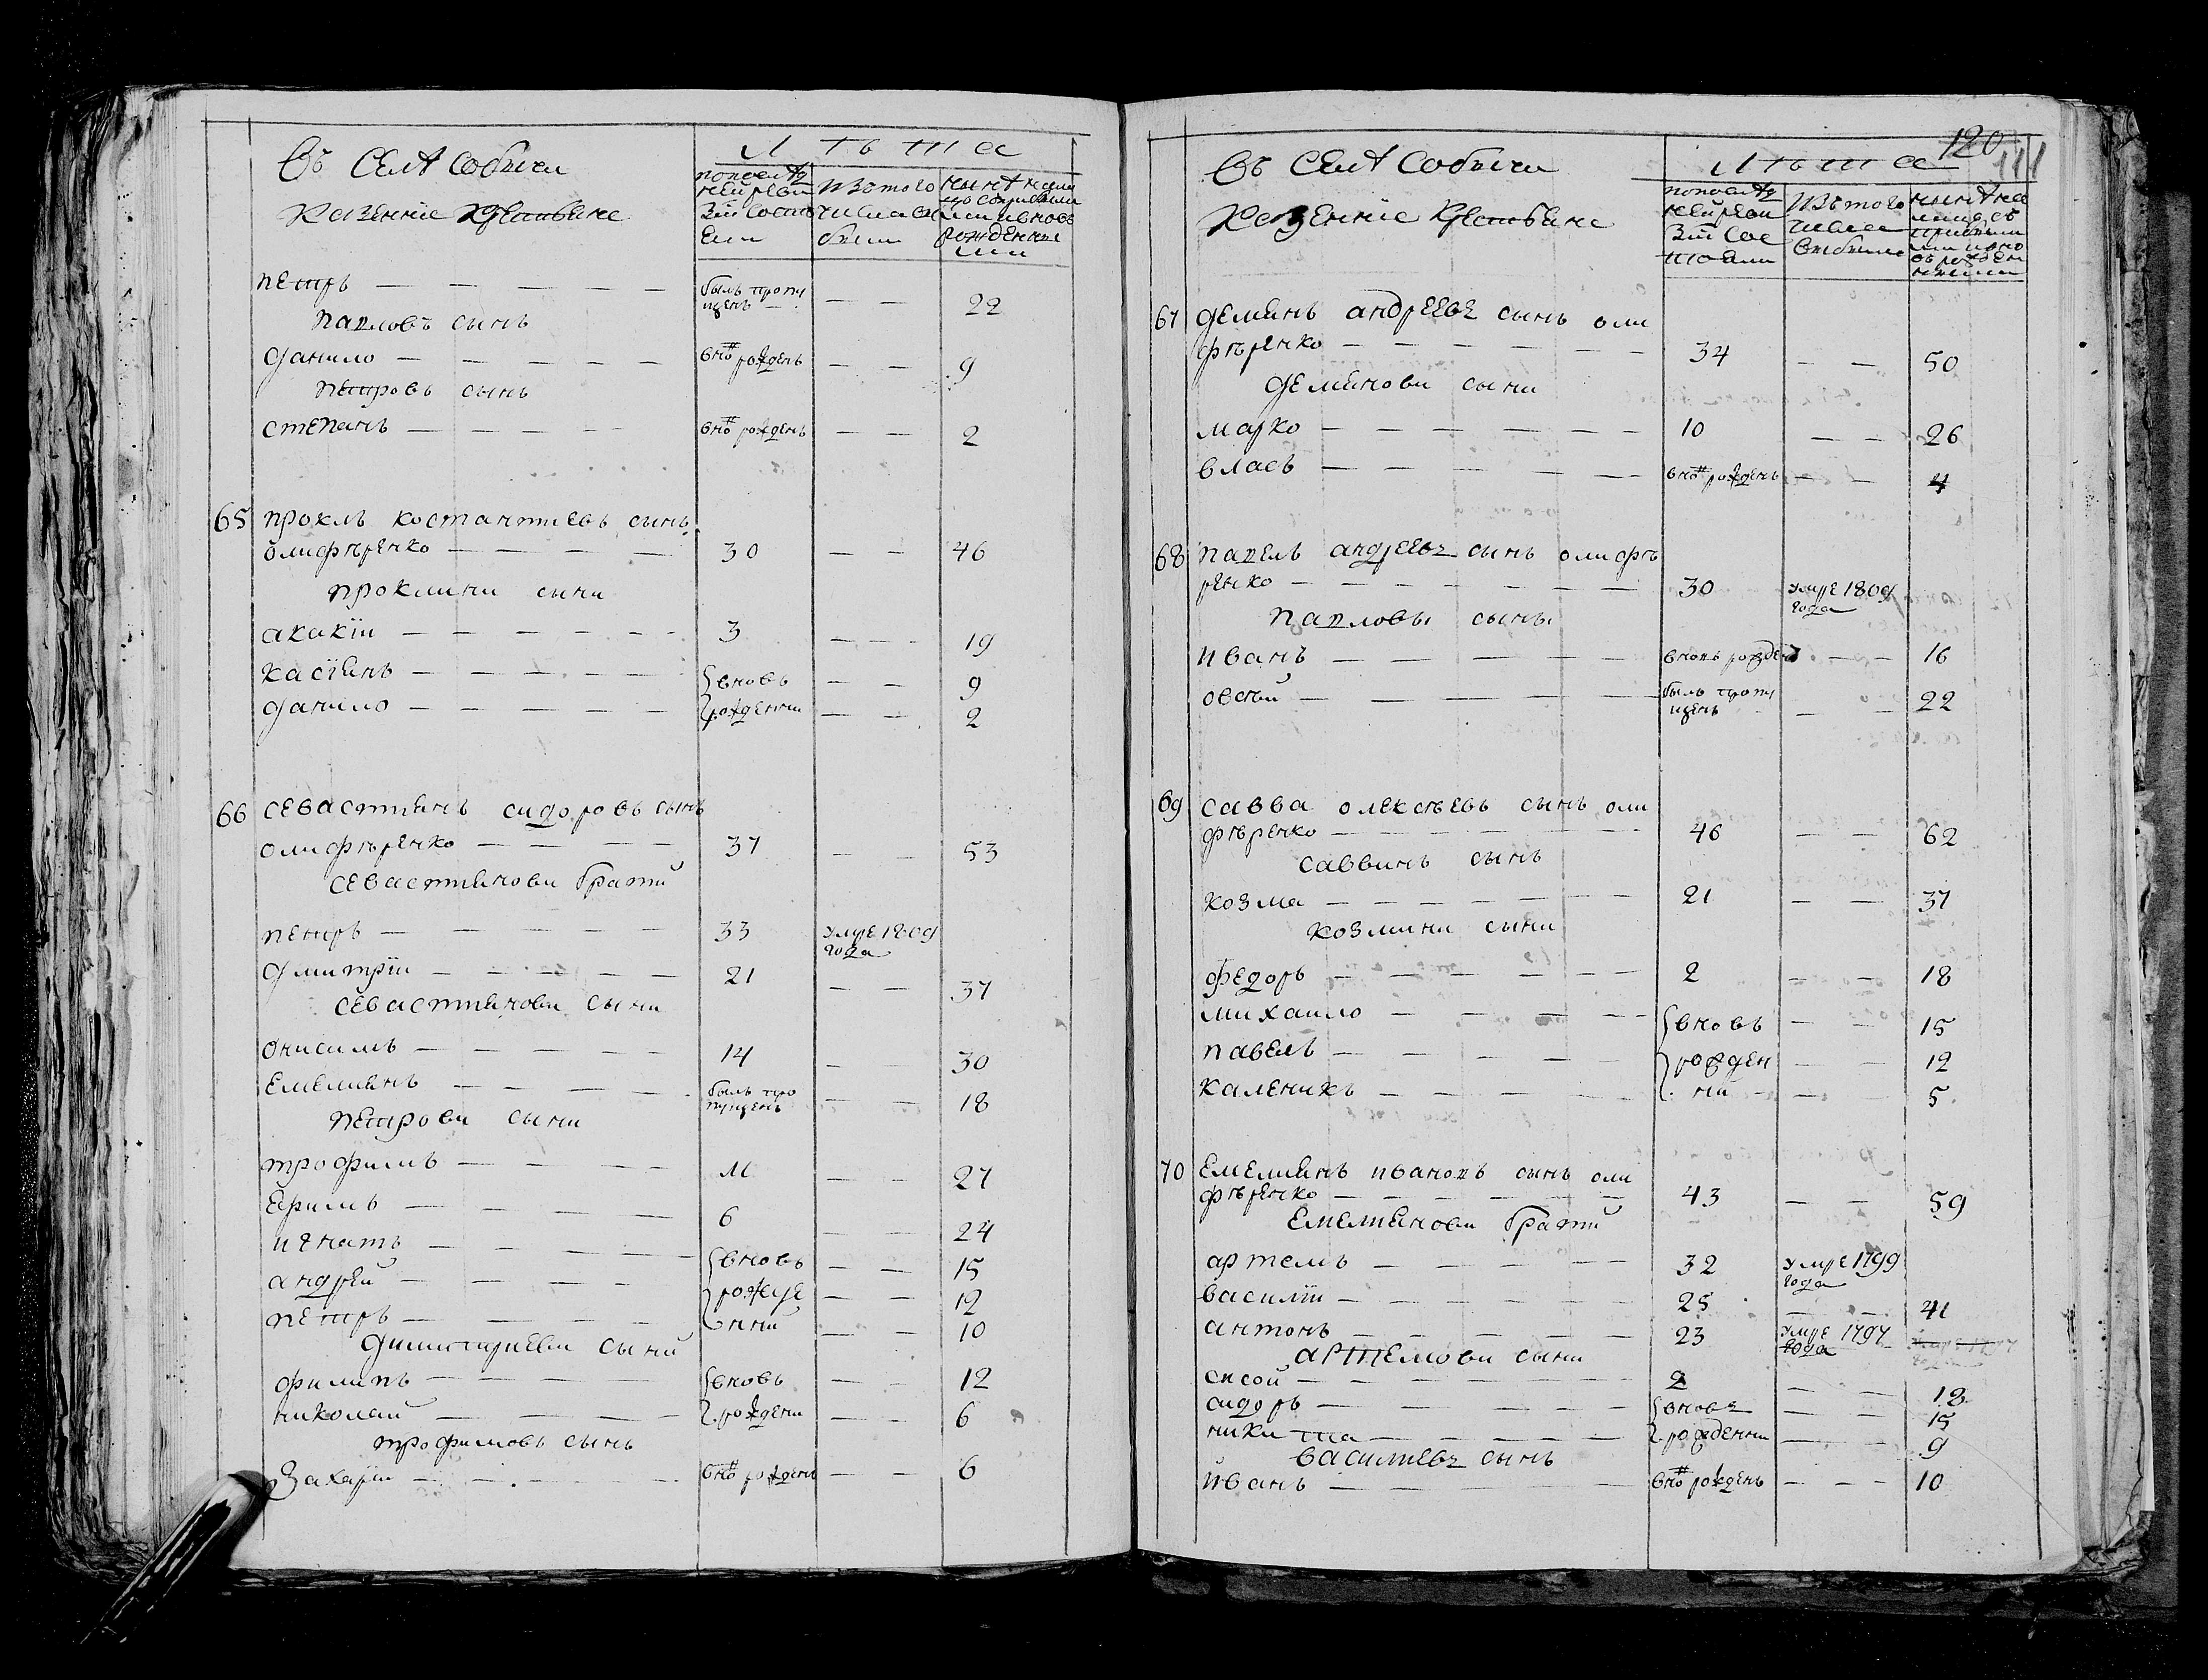 Въ Селѣ Собычи
Казенніе Крестьяне
Лѣта
По последней ревизіи состояли
Изъ того числа выбыли
Ныне на лицо вновь рожденными
Петръ — — — — былъ пропущенъ — — 22
Павловъ сынъ
Данило — — — — вно рожденъ — — 9
Петровъ сынъ
Степанъ — — — — вно рожденъ — — 2
65 Проклъ Костантиевъ сынъ
Олифѣренко — — — — 30 — — 46
Проклини сыни
Акакіи — — — — 3 — — 19
Касіянъ — — — — вновь — — 9
Данило — — — — рожденни — — 2
66 Севастиянъ Сидоровъ сынъ
Олифѣренко — — — — 37 — — 53
Севастиянови братій
Петръ — — — — 33 умре 1809 года
Дмитріи — — — — 21 — — 37
Севастиянови сыни
Онисимъ — — — — 14 — — 30
Емелиянъ — — — — былъ пропущенъ — — 18
Петрови сыни
Трофимъ — — — — 11 — — 27
Ефимъ — — — — 6 — — 24
Игнатъ — — — — вновь — — 15
Андрей — — — — рожде — — 12
Петръ — — — — нний — — 10
Димитриеви сыни
Филипъ — — — — вновь — — 12
Николай — — — — рождени — — 6
Трофимовъ сынъ
Захаріи — — — — вно рожденъ — — 6
120
111
Въ Селѣ Собычи
Казенніе Крестьяне
Лѣта
По последней ревизіи состояли
Изъ того числа выбыли
Ныне на лицо съ прибылими и рожденными
67 Демянъ Андреевъ сынъ Оли
фѣренко — — — — 34 — — 50
Демянови сыни
Марко — — — — 10 — — 26
Власъ — — — — вно рожденъ — — 4
68 Павелъ Андреевъ сынъ Олифѣ
ренко — — — — 30 умре 1809 года
Павловы сыны
Иванъ — — — — вновь рожденъ — — 16
Овсѣй — — — — былъ пропущенъ — — 22
69 Савва Олексѣевъ сынъ Оли
фѣренко — — — — 46 — — 62
Саввинъ сынъ
Козма — — — — 21 — — 37
Козмини сыни
Федоръ — — — — 2 — — 18
Михаило — — — — вновь — — 15
Павелъ — — — — рожден — — 12
Каленикъ — — — — ни — — 5
70 Емелиянъ Ивановъ сынъ Оли
фѣренко — — — — 43 — — 59
Емелиянови братий
Артемъ — — — — 32 умре 1799 года
Василіи — — — — 25 — — 41
Антонъ — — — — 23 умре 1797 года
Артемови сыни
Сисой — — — — 2 — — 18
Сидоръ — — — — вновь — — 15
Никита — — — — рожденни — — 9
Василиевъ сынъ
Иванъ — — — — вно рожденъ — — 10